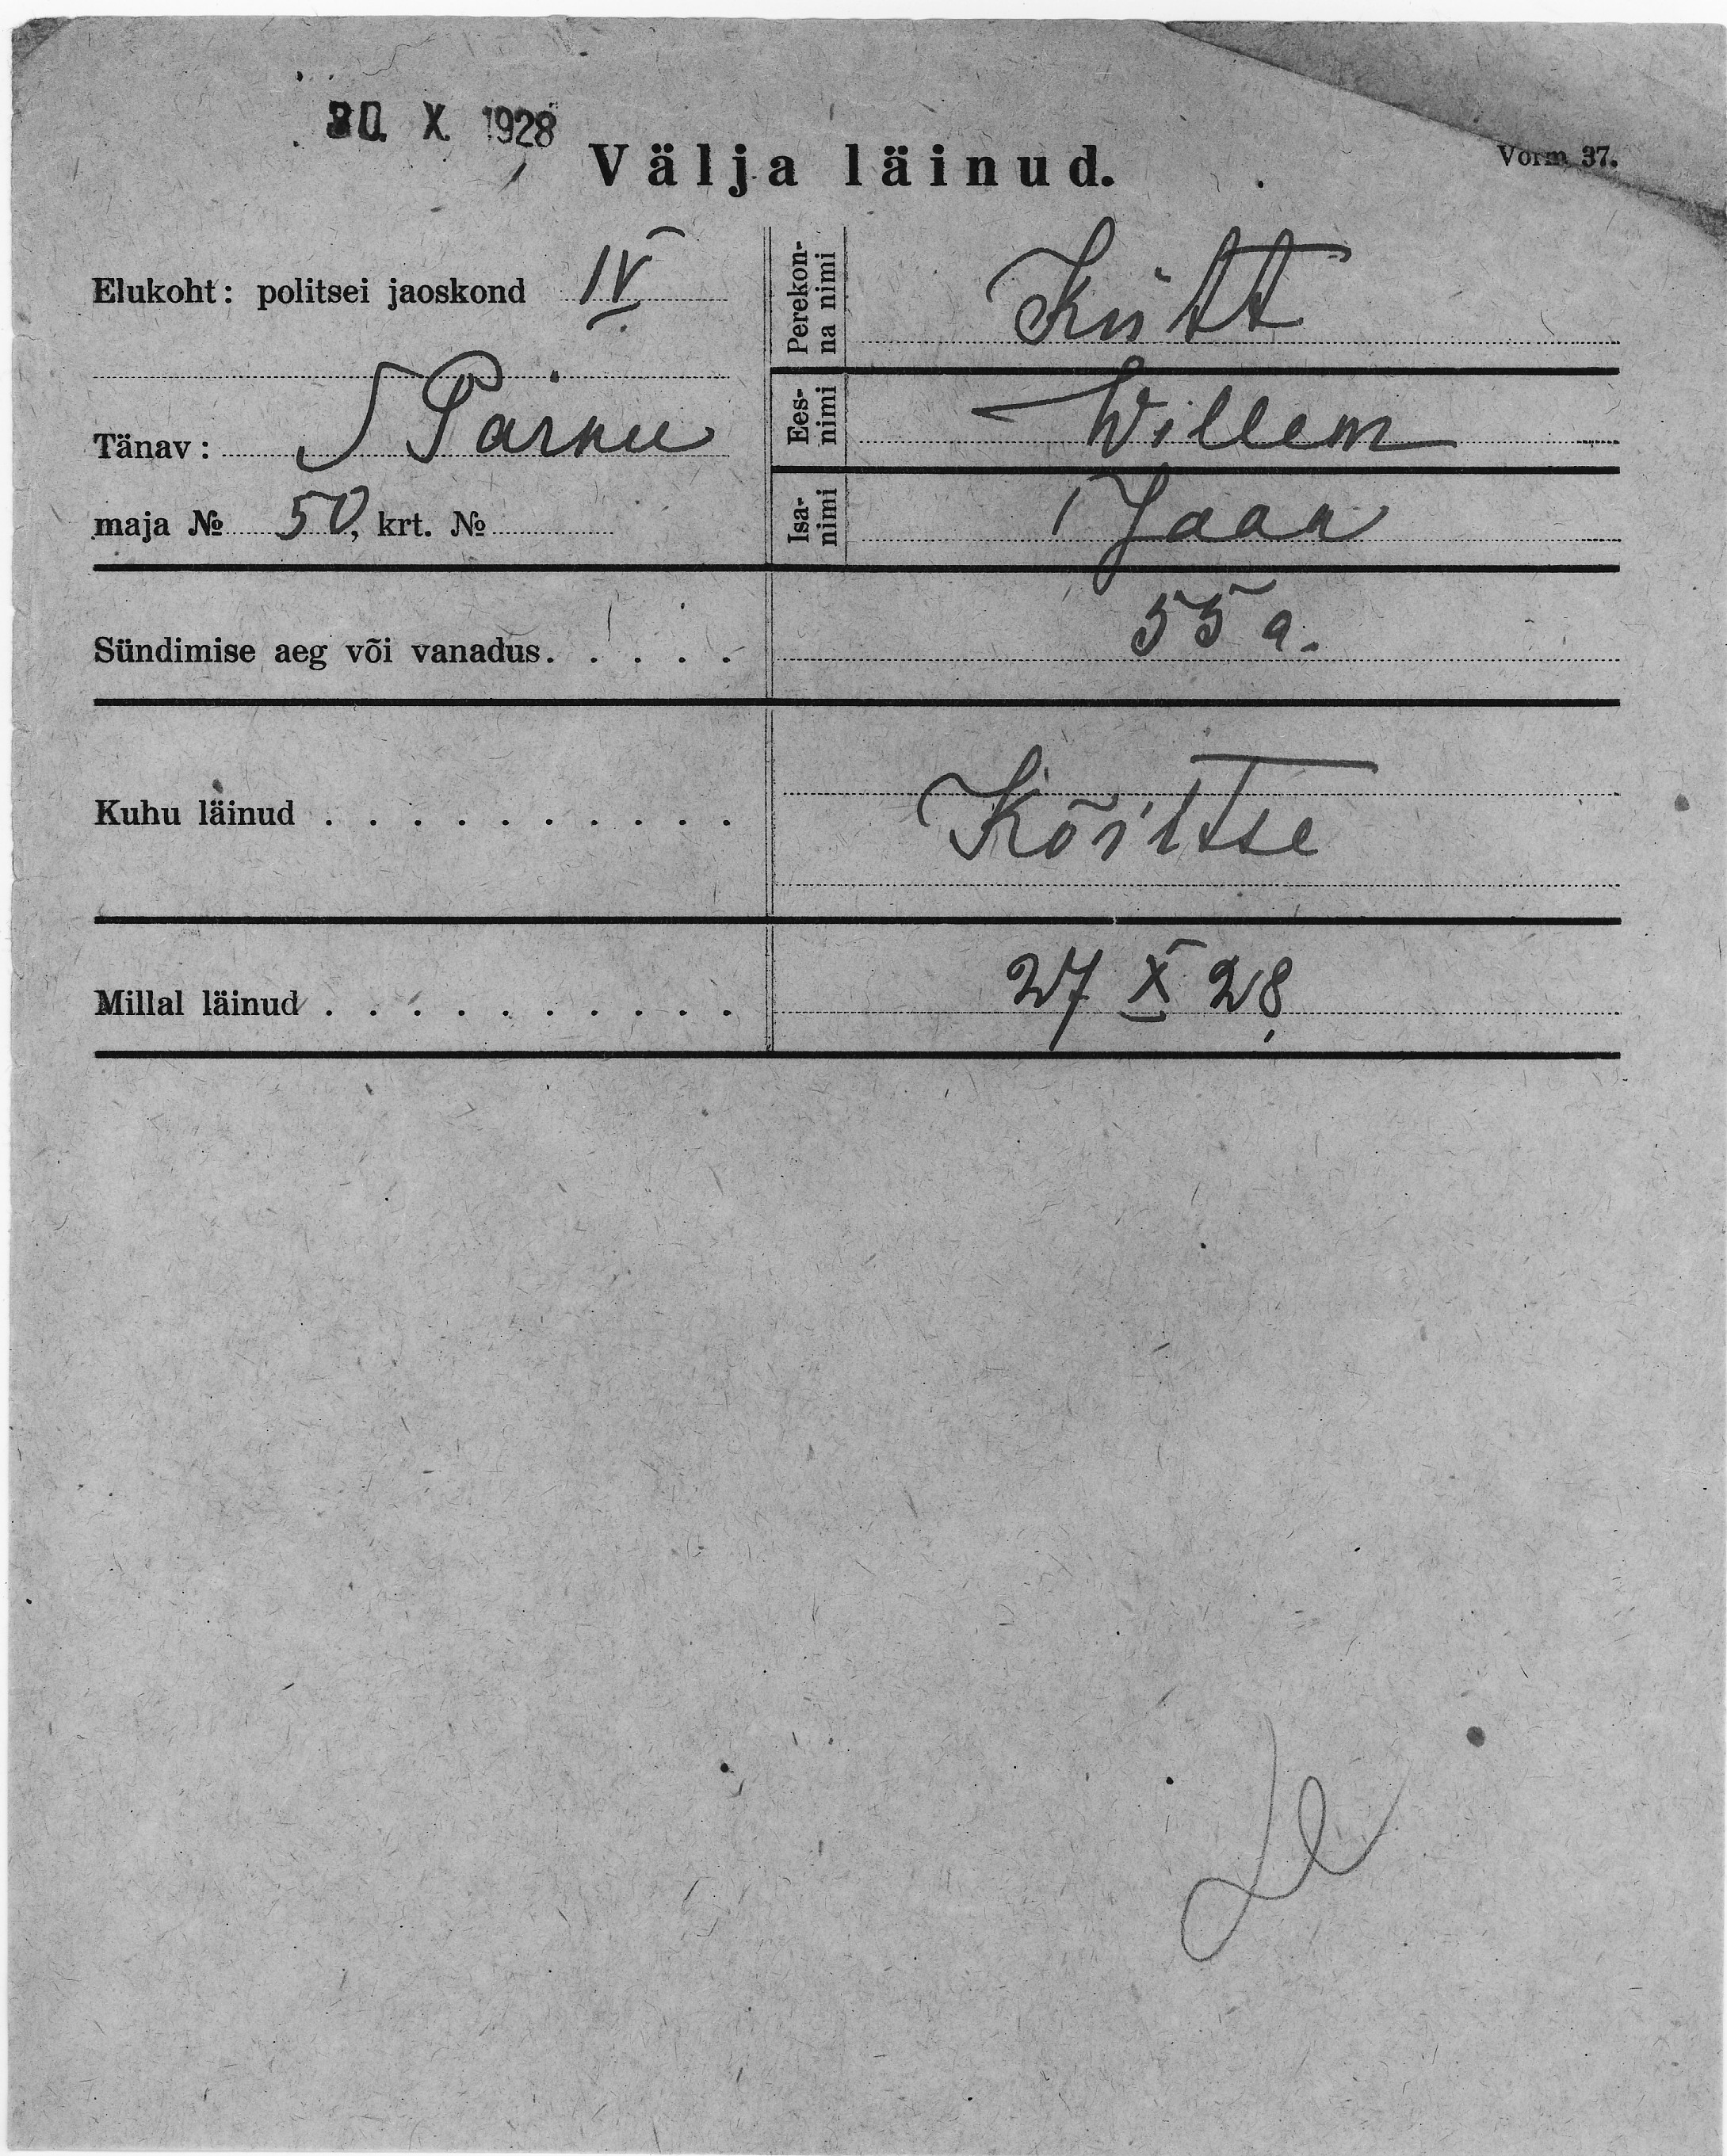 30. X. 1928
Välja läinud.
Vorm 37.
Elukoht: politsei jaoskond IV
Tänav: S Pärnu
maja № 50, krt. №
Perekonna nimi Kütt
Eesnimi Willem
Isanimi Jaan
Sündimise aeg või vanadus. . . . . 55 a.
Kuhu läinud . . . . . . . . . .
Millal läinud . . . . . . . . . . 27 X 28